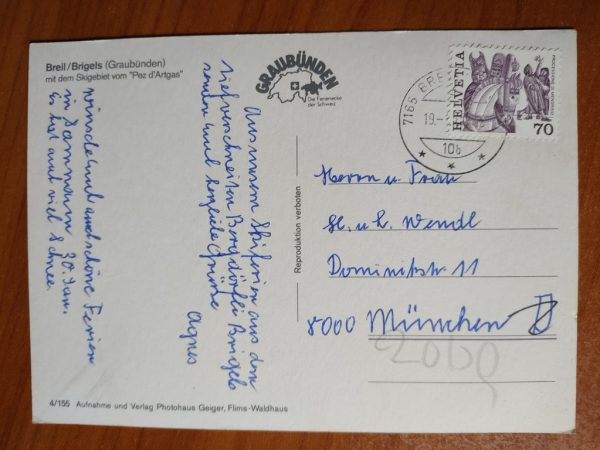 Breil/Brigels (Graubünden)
mit dem Skigebiet vom "Pez d'Artgas"
GRAUBÜNDEN
Die Ferienecke
der Schweiz
7165 BRE
19.-
10
HELVETIA
PROCESSIONE S. MENDRISIO
70
Aus unsern Skiferien aus dem
tiefverschneiten Bergdörfli Brigels
senden und herzliche Grüsse
Agnes
wünsche und auch schöne Ferien
in Samnaun 30. Jan.
Es hat auch viel Schnee.
Reproduktion verboten
Herrn u. Frau
H. u. L. Wendl
Dominikstr 11
8000 München
D
4/155 Aufnahme und Verlag Photohaus Geiger, Flims-Waldhaus